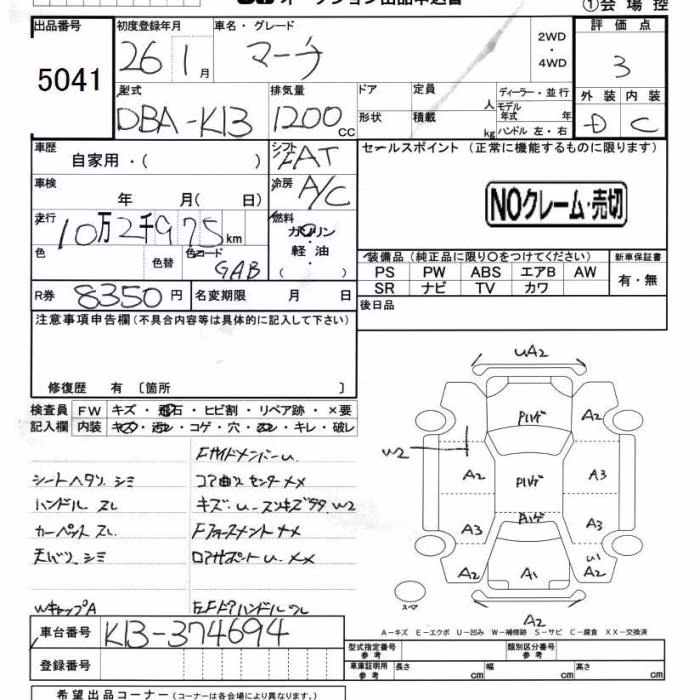 オークション出品申込書
①会場控
出品番号
5041
初度登録年月
26 1月
車名・グレード
マーチ
2WD
・
4WD
評価点
3
外装 内装
D C
型式
DBA-K13
排気量
1200cc
ドア
形状
定員 人
積載 kg
ディーラー・並行
モデル年式 年
ハンドル 左・右
車歴
自家用・( )
シフト
FAT
セールスポイント (正常に機能するものに限ります)
車検
年 月( 日)
冷房
A/C
NOクレーム・売切
走行
10万2千975km
燃料
ガソリン
・
軽油
・
( )
色
色替
色コード
GAB
装備品(純正品に限り○をつけてください)
新車保証書
PS PW ABS エアB AW
有・無
SR ナビ TV カワ
R券 8350円
名変期限 月 日
後日品
注意事項申告欄(不具合内容等は具体的に記入して下さい)
修復歴 有 〔箇所 〕
検査員記入欄
FW キズ・飛石・ヒビ割・リペア跡・×要
内装 キズ・汚レ・コゲ・穴・スレ・キレ・破レ
FサイドメンバーU.
シートヘタリ シミ
コア曲ス センターXX
ハンドル スレ
キズ・U
W2
カーペット スレ
天バリ シミ
ロアサポートU XX
WキャップA
ドアハンドル
車台番号 K13-374694
登録番号
UA2
Pハゲ
A2
W2
A2
Pハゲ
A3
Pハゲ
A3
A3
U1
A2
A1
A2
スペア
A2
A-キズ E-エクボ U-凹み W-補修跡 S-サビ C-腐食 XX-交換済
型式指定番号 参考
類別区分番号 参考
車庫証明用 参考
長さ cm
幅 cm
高さ cm
希望出品コーナー(コーナーは各会場により異なります。)